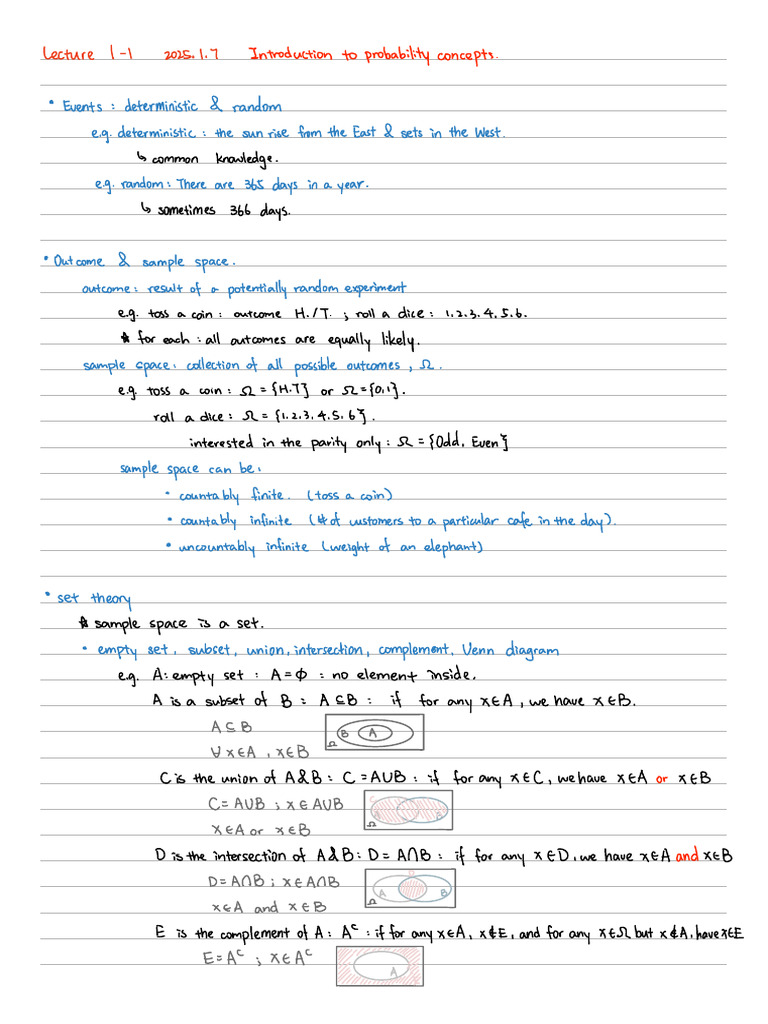 Lecture 1-1 2025.1.7 Introduction to probability concepts.
• Events : deterministic & random
e.g. deterministic : the sun rise from the East & sets in the West.
↳ common knowledge.
e.g. random : There are 365 days in a year.
↳ sometimes 366 days.
• Outcome & sample space.
outcome : result of a potentially random experiment
e.g. toss a coin : outcome H./T. ; roll a dice : 1.2.3.4.5.6.
* for each : all outcomes are equally likely.
sample space : collection of all possible outcomes , Ω.
e.g. toss a coin : Ω = {H.T} or Ω = {0,1}.
roll a dice : Ω = {1.2.3.4.5.6}.
interested in the parity only : Ω = {Odd, Even}
sample space can be :
• countably finite. (toss a coin)
• countably infinite (# of customers to a particular cafe in the day).
• uncountably infinite (weight of an elephant)
• set theory
* sample space is a set.
• empty set, subset, union, intersection, complement, Venn diagram
e.g. A : empty set : A = ϕ : no element inside.
A is a subset of B : A ⊆ B : if for any x∈A , we have x∈B.
A ⊆ B
B A
Ω
∀ x∈A , x∈B
C is the union of A&B : C = A∪B : if for any x∈C, we have x∈A or x∈B
C = A∪B ; x∈A∪B
C
A B
Ω
x∈A or x∈B
D is the intersection of A&B : D = A∩B : if for any x∈D, we have x∈A and x∈B
D = A∩B ; x∈A∩B
D
A B
Ω
x∈A and x∈B
E is the complement of A : Aᶜ : if for any x∈A, x∉E, and for any x∈Ω but x∉A, have x∈E
E = Aᶜ ; x∈Aᶜ
A